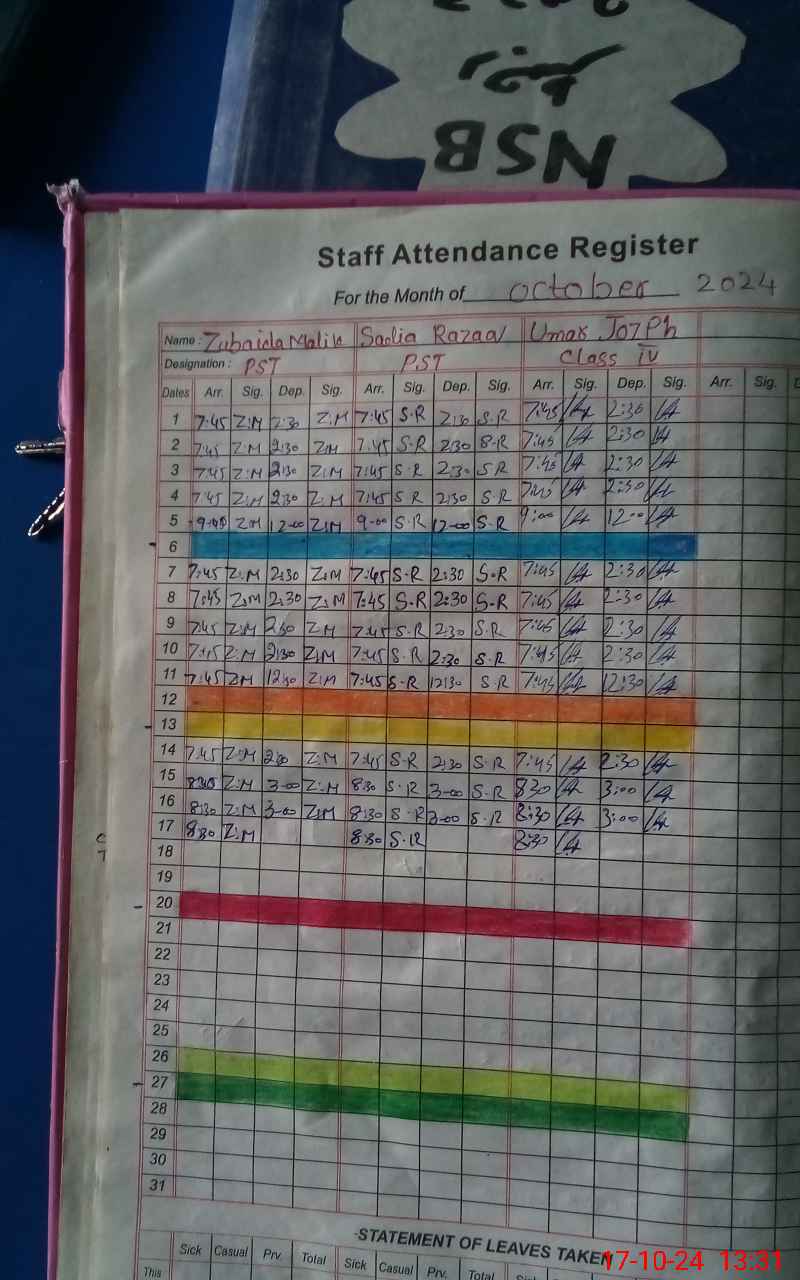 NSB
Staff Attendance Register
For the Month of October 2024
Name : Zubaida Malik Sadia Razaq Umar Jozph
Designation : PST PST Class IV
Dates Arr. Sig. Dep. Sig. Arr. Sig. Dep. Sig. Arr. Sig. Dep. Sig. Arr. Sig.
1 7:45 Z:M 2:30 Z:M 7:45 S.R 2:30 S.R 7:45 2:30
2 7:45 Z:M 2:30 Z:M 7:45 S.R 2:30 S.R 7:45 2:30
3 7:45 Z:M 2:30 Z:M 7:45 S.R 2:30 S.R 7:45 2:30
4 7:45 Z:M 2:30 Z:M 7:45 S.R 2:30 S.R 7:45 2:30
5 Z:M 12-00 Z:M 9-00 S.R 12-00 S.R 9:00 12:00
6
7 7:45 Z:M 2:30 Z:M 7:45 S.R 2:30 S.R 7:45 2:30
8 7:45 Z:M 2:30 Z:M 7:45 S.R 2:30 S.R 7:45 2:30
9 7:45 Z:M 2:30 Z:M 7:45 S.R 2:30 S.R 7:45 2:30
10 7:45 Z:M 2:30 Z:M 7:45 S.R 2:30 S.R 7:45 2:30
11 7:45 Z:M 12:30 Z:M 7:45 S.R 12:30 S.R 7:45 12:30
12
13
14 7:45 Z:M Z:M 7:45 S.R 2:30 S.R 7:45 2:30
15 8:30 Z:M 3-00 Z:M 8:30 S.R 3-00 S.R 8:30 3:00
16 8:30 Z:M 3-00 Z:M 8:30 S.R 3-00 S.R 8:30 3:00
17 8:30 Z:M 8:30 S.R 8:30
18
19
20
21
22
23
24
25
26
27
28
29
30
31
STATEMENT OF LEAVES TAKEN
Sick Casual Prv. Total Sick Casual Prv. Total
This
17-10-24 13:31